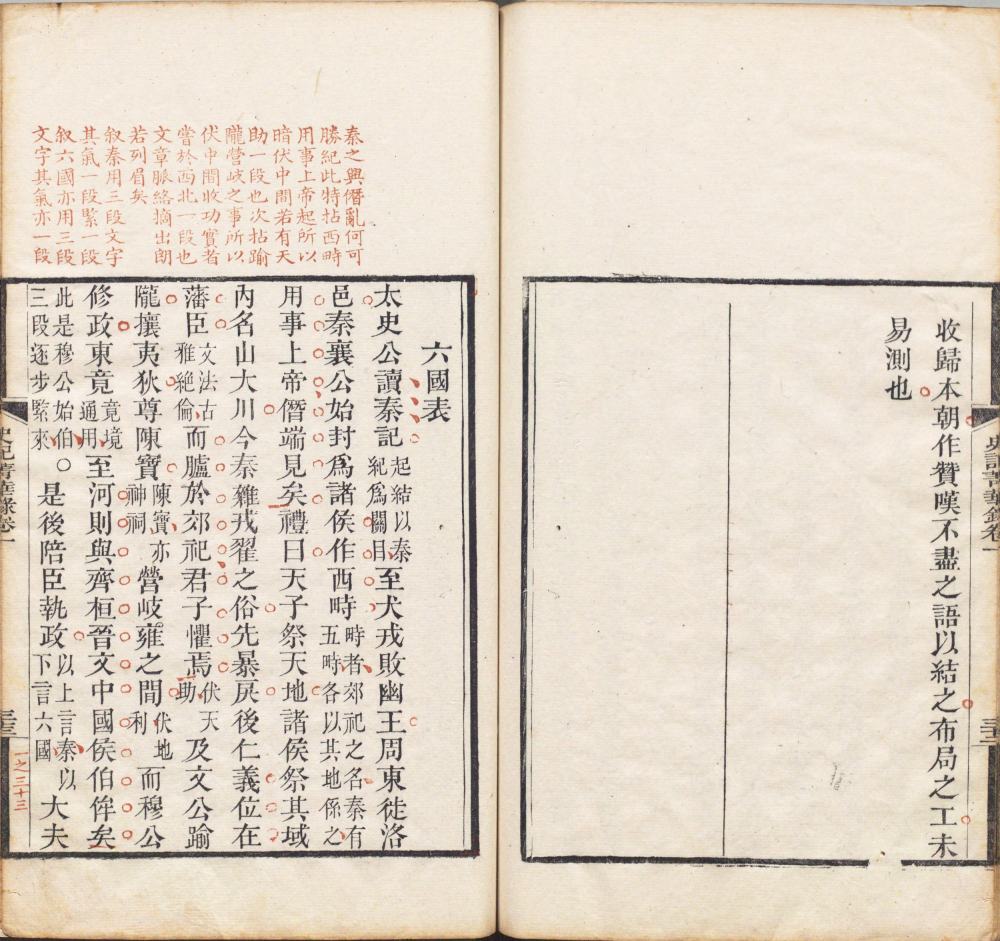 收歸本朝作贊嘆不盡之語以結之布局之工未
易測也
史記菁華錄卷一
秦之興僭亂何可
勝紀此特拈西畤
用事上帝起所以
暗伏中間若有天
助一段也次拈踰
隴營岐之事所以
伏中間收功實者
嘗於西北一段也
文章脈絡摘出朗
若列眉矣
叙秦用三段文字
其氣一段緊一段
叙六國亦用三段
文字其氣亦一段
六國表
太史公讀秦記起結以秦紀爲關目至犬戎敗幽王周東徙洛
邑秦襄公始封爲諸侯作西畤畤者郊祀之名秦有五畤各以其地係之
用事上帝僭端見矣禮曰天子祭天地諸侯祭其域
內名山大川今秦雜戎翟之俗先暴戾後仁義位在
藩臣文法古雅絕倫而臚於郊祀君子懼焉伏天助及文公踰
隴攘夷狄尊陳寶陳寶亦神祠營岐雍之間伏地利而穆公
修政東竟竟境通用至河則與齊桓晉文中國侯伯侔矣
此是穆公始伯三段逐步緊來○是後陪臣執政以上言秦以下言六國大夫
史記菁華錄卷一
一之三十三